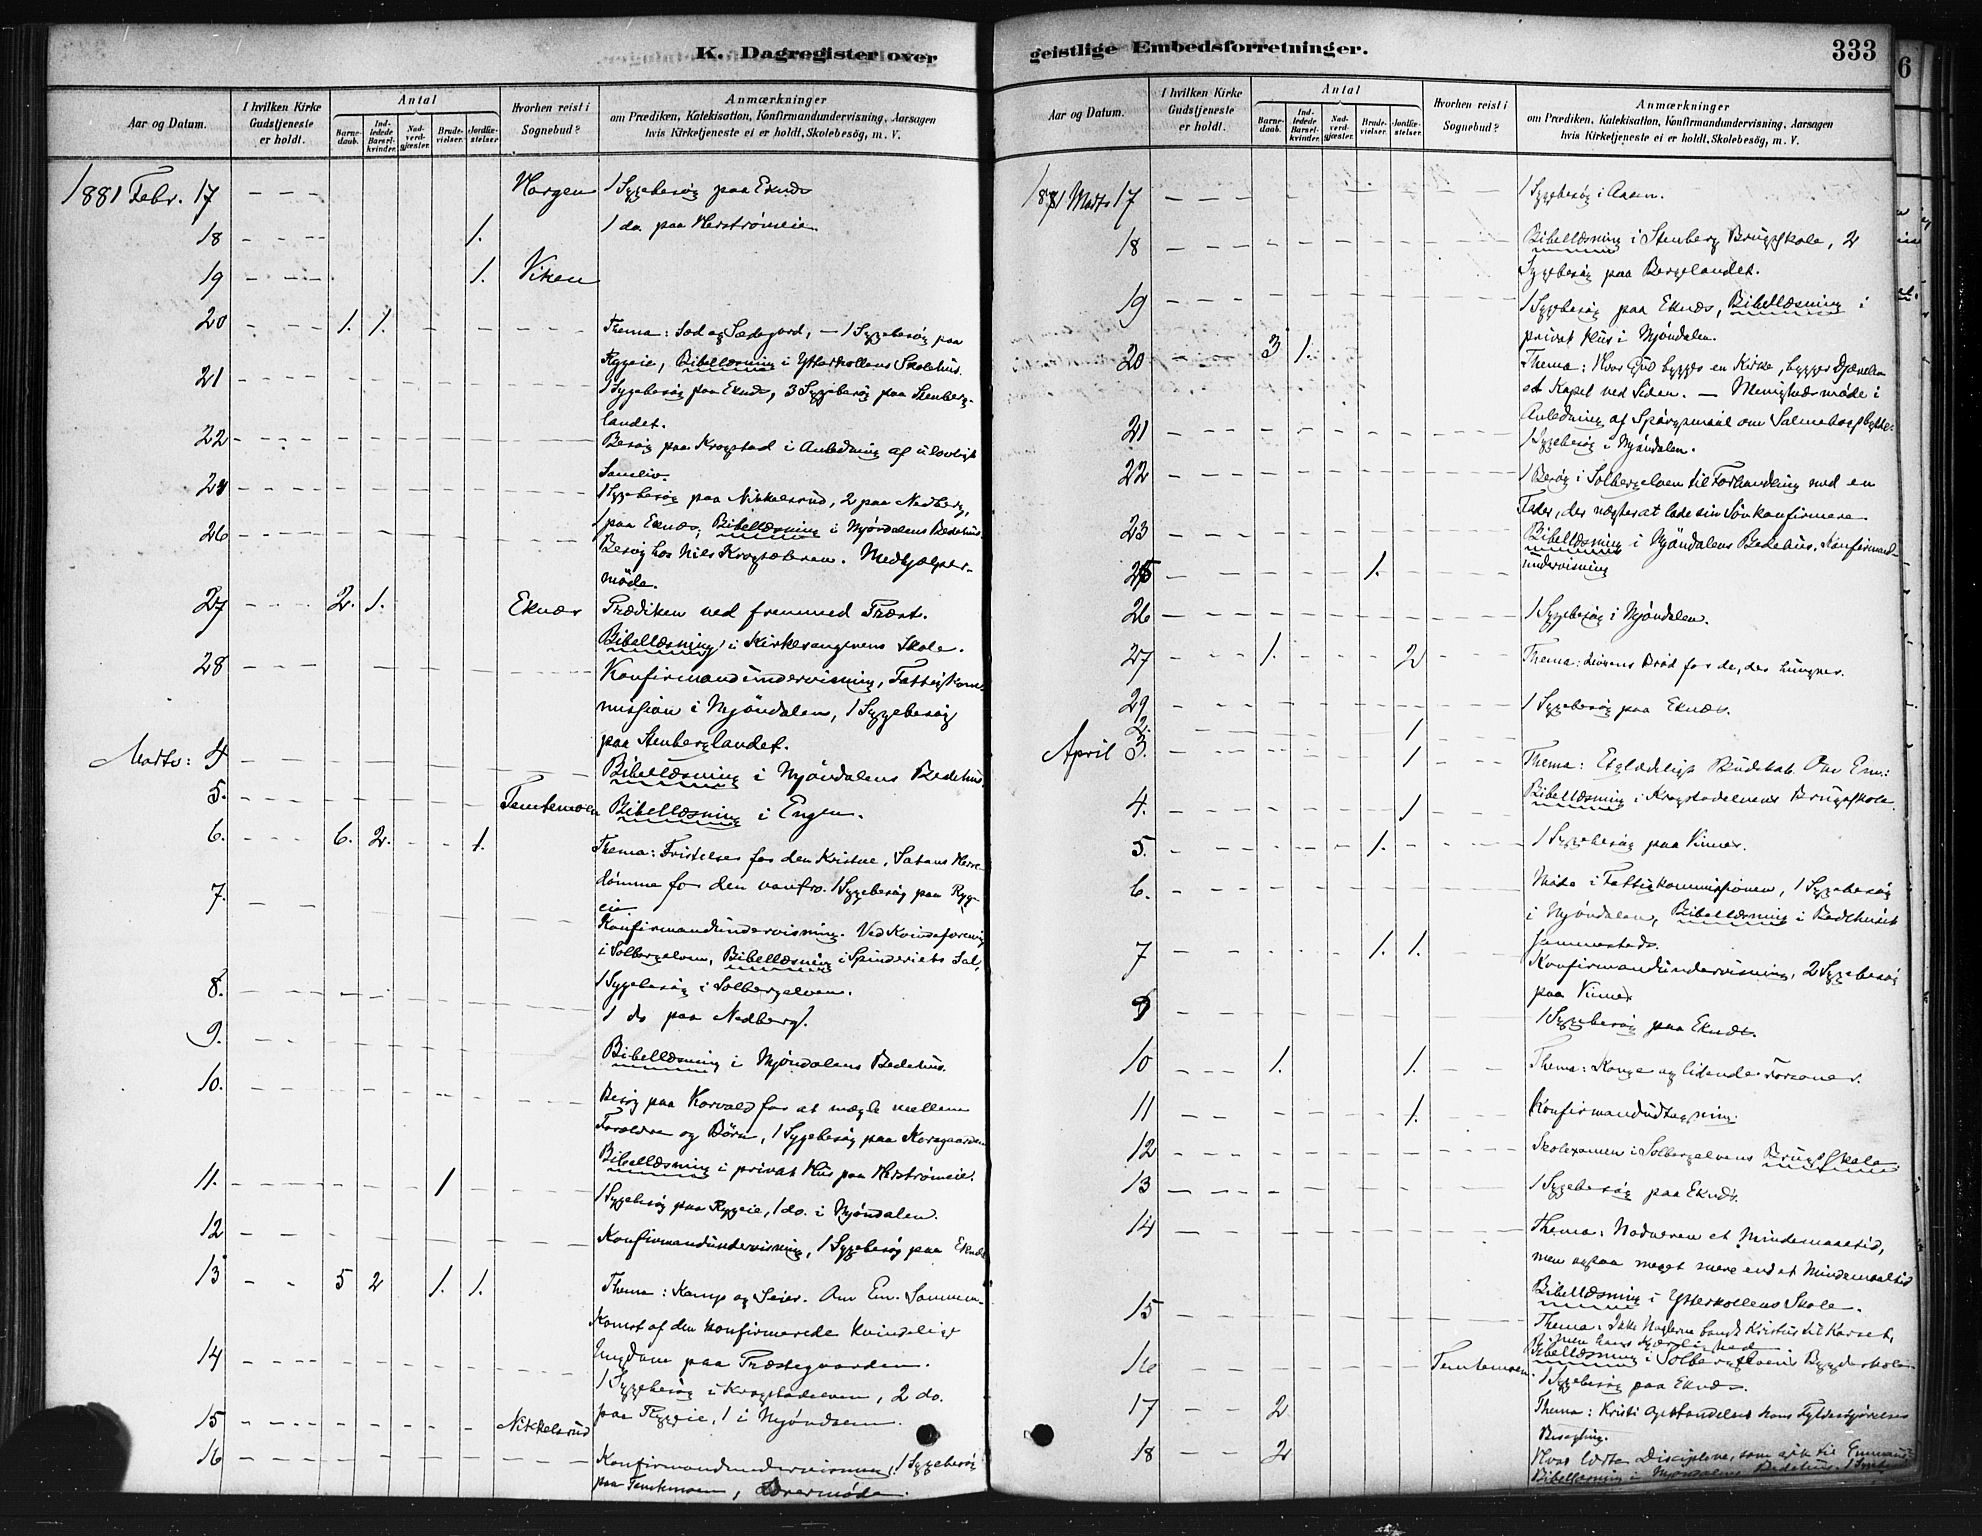 K. Dagregister over
Aar og Datum.
I hvilken Kirke Gudstjeneste er holdt.
Antal
Barne-daab.
Ind-ledede Barsel-kvinder.
Nad-verd-gjæster.
Brude-vielser.
Jordfæ-stelser
Hvorhen reist i Sognebud?
Anmærkninger
om Prædiken, Katekisation, Konfirmandundervisning, Aarsagen
hvis Kirketjeneste ei er holdt, Skolebesög, m. V.
1881 Febr. 17 Horgen 1 Sygebesög paa Eknæs
18 1. 1 do. paa Herstrømeie
19 1. Viken
20 1. 1. Thema: Sæd og Sædejord, — 1 Sygebesög paa
Rygeie, Bibellæsning i Ytterkollens Skolehus.
21 1 Sygebesög paa Eknæs, 3 Sygebesög paa Stenberg-
landet.
22 Besög paa Krogstad i Anledning af ulovligt
Samliv.
1 Sygebesög paa Nikkelsrud, 2 paa Nedberg,
1 paa Eknæs, Bibellæsning i Mjöndalens Bedehus.
26 Besög hos Nils . Medhjælper-
möde.
27 2. 1. Eknæs Prædiken ved fremmed Præst.
Bibellæsning i Skole.
28 Konfirmandundervisning, Fattigkom-
mission i Mjöndalen, 1 Sygebesög
paa Stenberglandet.
Marts: 4 Bibellæsning i Mjöndalens Bedehus.
5. Temtemoen Bibellæsning i Engen.
6. 6. 2. 1. Thema: Fristelser for den Kristne, Satans Herre-
dömme for den vantro. 1 Sygebesög paa Ryg-
eie
7. Konfirmandundervisning. Ved Kvindeforening
i Solbergelven, Bibellæsning i Spinderiets Sal,
8. 1 Sygebesög i Solbergelven.
1 do paa Nedberg.
9. Bibellæsning i Mjöndalens Bedehus.
10. Besög paa Horvald for at mægle mellem
Forældre og Börn, 1 Sygebesög paa Korsgaarden
Bibellæsning i privat Hus paa Herstrømeie.
11. 1 1 Sygebesög paa Rygeie, 1 do. i Mjöndalen.
12 Konfirmandundervisning, 1 Sygebesög paa Eknæs
13 5 2 1. 1. Thema: Kamp og Seier. Om Em. Sammen-
komst af den konfirmerede kvindelige
Ungdom paa Præstegaarden.
14 1 Sygebesög i Krogstadelven, 2 do.
paa Rygeie, 1 i Mjöndalen.
15 Nikkelsrud
16 Konfirmandundervisning, 1 Sygebesög
paa Temtemoen, Lærermöde.
geistlige Embedsforretninger.
333
Aar og Datum.
I hvilken Kirke Gudstjeneste er holdt.
Antal
Barne-daab.
Ind-ledede Barsel-kvinder.
Nad-verd-gjæster.
Brude-vielser.
Jordfæ-stelser.
Hvorhen reist i Sognebud?
Anmærkninger
om Prædiken, Katekisation, Konfirmandundervisning, Aarsagen
hvis Kirketjeneste ei er holdt, Skolebesög, m. V.
1881 Marts 17 1 Sygebesög i Aasen.
18 Bibellæsning i Stenberg Brugsskole, 2
Sygebesög paa Bergelandet.
19 1 Sygebesög paa Eknæs, Bibellæsning i
privat Hus i Mjöndalen.
20 3 1. Thema: Hvor Gud bygger en Kirke, bygger Djævelen
et Kapel ved Siden. — Menighedsmöde i
Anledning af Spörgsmaal om Salmebogsbytte.
21 1 Sygebesög i Mjöndalen.
22 1 Besög i Solbergelven til Forhandling med en
Fader, der nægter at lade sin Sön konfirmere
23 Bibellæsning i Mjöndalens Bedehus. Konfirmand-
undervisning
25 1.
26 1 Sygebesög i Mjöndalen.
27 1. 2 Thema: Livsens Bröd for de, der hungrer.
29 1 Sygebesög paa Eknæs.
2. 1
April 3. 1 Thema: Et glædeligt Budskab. Om Em:
Bibellæsning i Krogstadelvens Brugsskole.
4. 1
5. 1. 1 Sygebesög paa Vinnes.
6. Möde i Fattigkommissionen, 1 Sygebesög
i Mjöndalen, Bibellæsning i Bedehuset
sammesteds.
7 1. 1. Konfirmandundervisning, 2 Sygebesög
paa Vinnes
9 1 Sygebesög paa Eknæs.
10 1. 1. Thema: Konge og lidende Forsoner.
11 1. Konfirmandudtagning.
12 Skoleexamen i Solbergelvens Brugsskole.
13 1 Sygebesög paa Eknæs.
14 Thema: Nadveren et Mindemaaltid,
men ogsaa meget mere end et Mindemaaltid
Bibellæsning i Ytterkollens Skole.
15 Thema: Ikke Naglerne bandt Kristus til Korset,
men hans Kjærlighed
Bibellæsning i Solbergelvens Bygdeskole
16 Temtemoen 1 Sygebesög paa Eknæs.
17 2 Thema: Kristi Opstandelse hans Fyldestgjörelses
Besegling.
18 2 Hvad lærte Disciplene, som gik til Emmaus
Bibellæsning i Mjöndalens Bedehus.